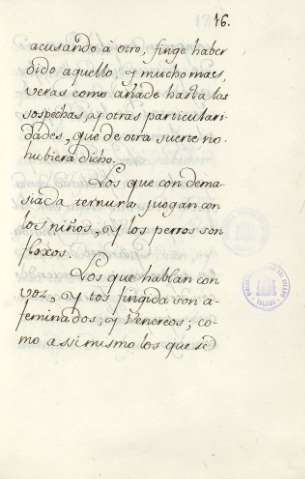 16.
acusando à otro, finge haber
dido aquello, y mucho mas,
veras como añade hasta las
sospechas, y otras particulari-
dades, que de otra suerte no
hubiera dicho.
Los que con dema-
siada ternura juegan con
los niños, y los perros son
floxos.
Los que hablan con
voz, y tos fingida son a-
feminados, y Venereos; co-
mo assi mismo los que se